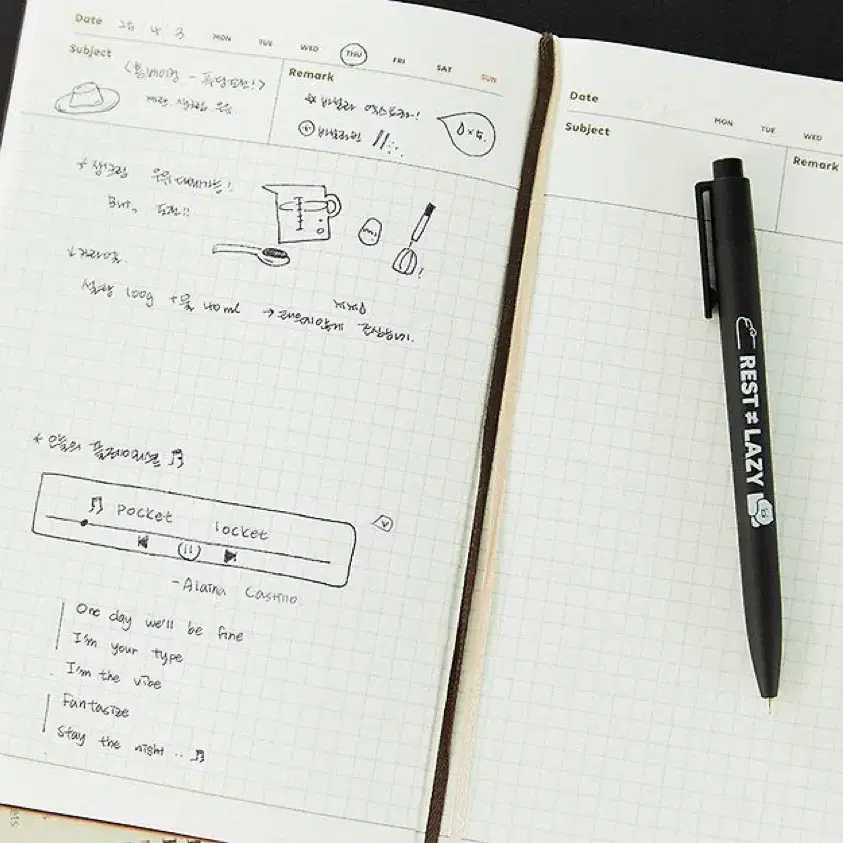 Date 25 4 3 MON TUE WED THU FRI SAT SUN
Subject
<홈베이킹 - 푸딩도전!>
계란 생크림 우유
Remark
바닐라 익스트랙!
바닐라빈
* 생크림 우유대체가능!
But, 도전!!
* 카라멜
설탕 100g + 물 40ml → 태우지않게 조심하기.
* 오늘의 플레이리스트
pocket locket
- Alaina Castillo.
One day we'll be fine
I'm your type
I'm the vibe
Fantasize
Stay the night ..
Date
MON TUE WED
Subject
Remark
REST ≠ LAZY